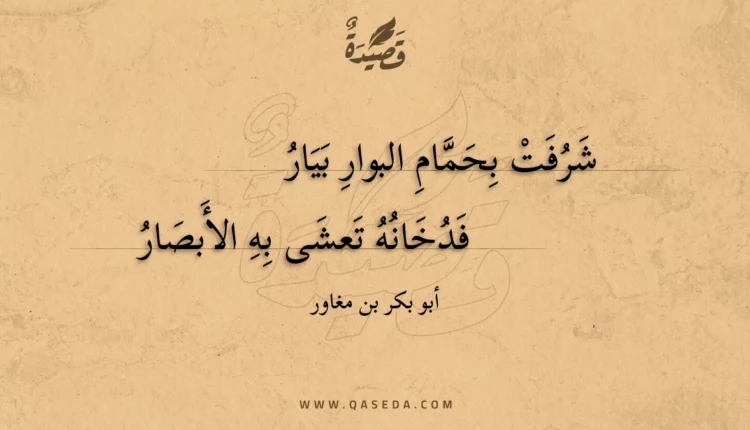 قَصِيْدَةٌ
شَرُفَتْ بِحَمَّامِ البوارِ بَيَارُ
فَدُخَانُهُ تَعشَى بِهِ الأَبصَارُ
أبو بكر بن مغاور
WWW.QASEDA.COM